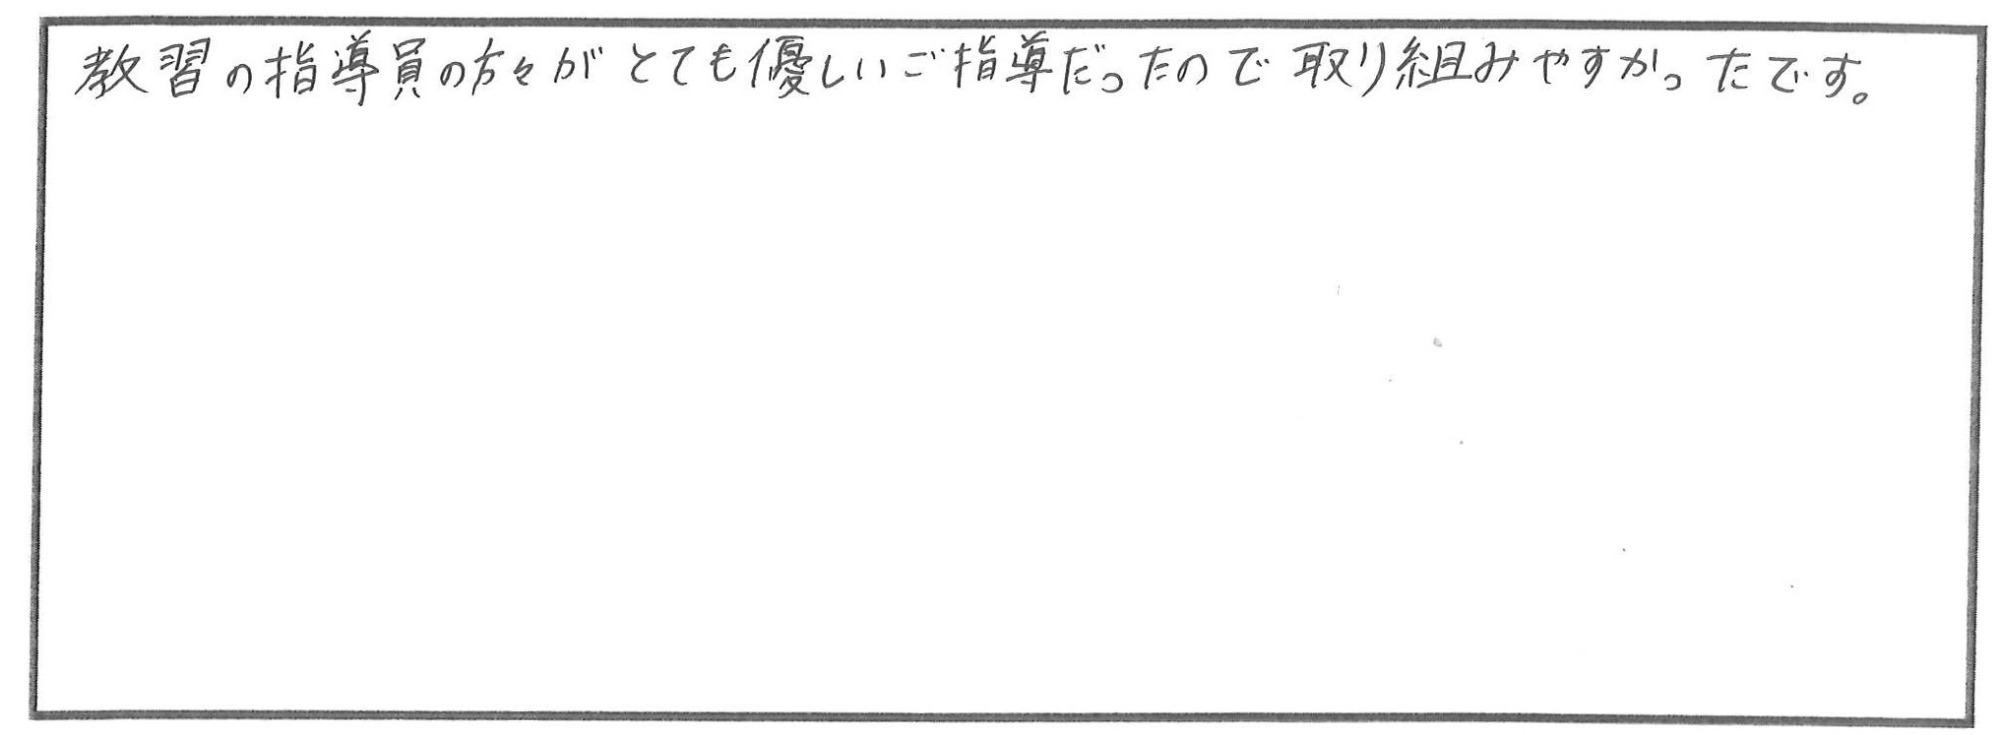 教習の指導員の方々がとても優しいご指導だったので取り組みやすかったです。